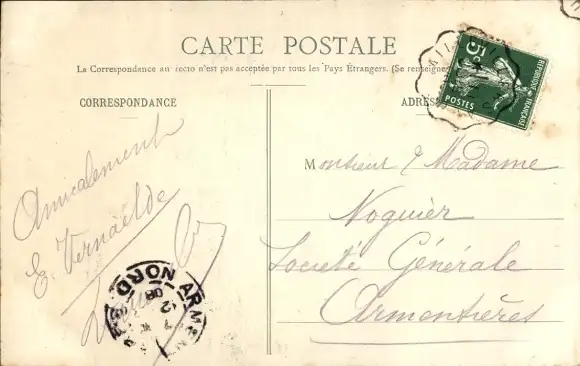 CARTE POSTALE
La Correspondance au recto n'est pas acceptée par tous les Pays Étrangers. (Se renseigner
CORRESPONDANCE
ADRES
5c
RÉPUBLIQUE FRANÇAISE
POSTES
Amicalement
E. Vernaelde
Monsieur & Madame
Noguier
Societé Générale
Armentières
ARMEN
NORD